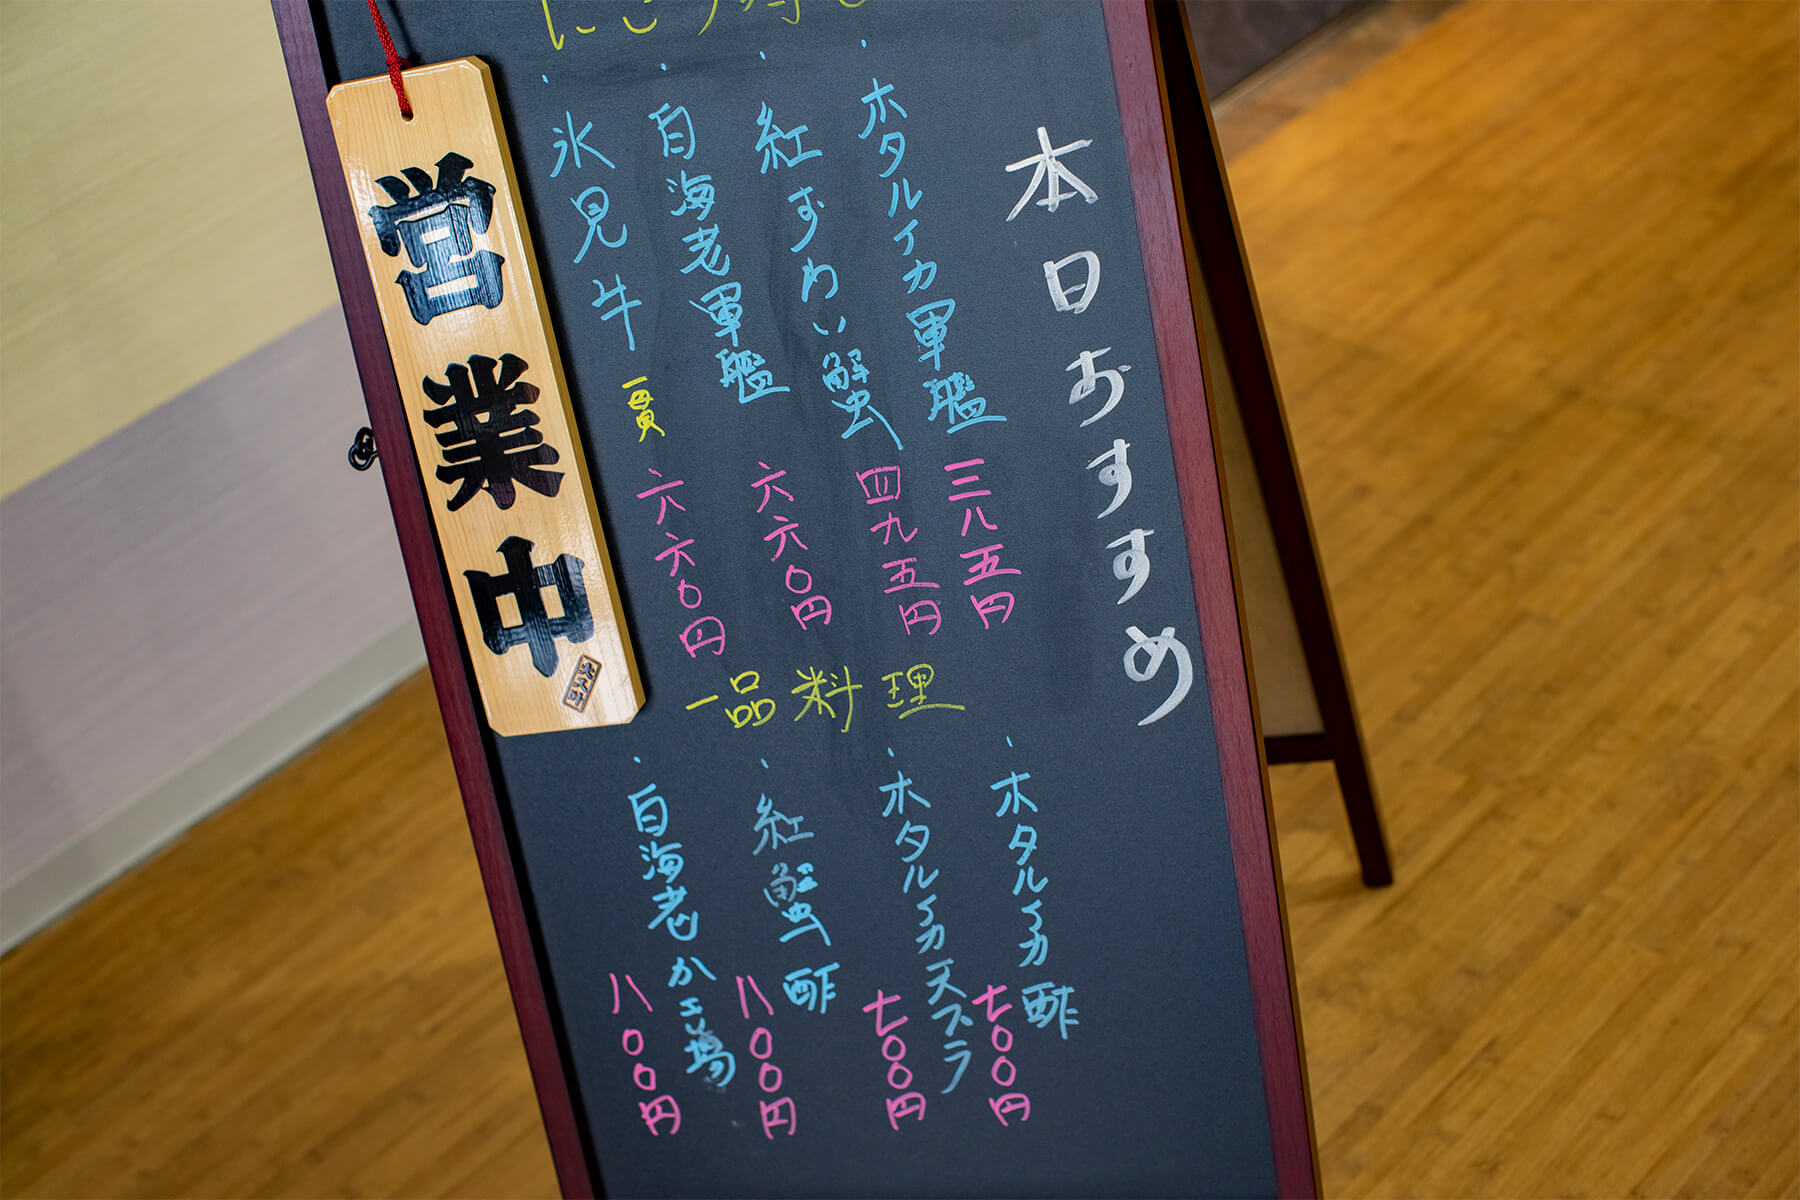 本日おすすめ
・ホタルイカ軍艦 三八五円
・紅ずわい蟹 四九五円
・白海老軍艦 六六〇円
・氷見牛 一貫 六六〇円
一品料理
・ホタルイカ酢 七〇〇円
・ホタルイカ天プラ 七〇〇円
・紅蟹酢 八〇〇円
・白海老かき揚 八〇〇円
営業中